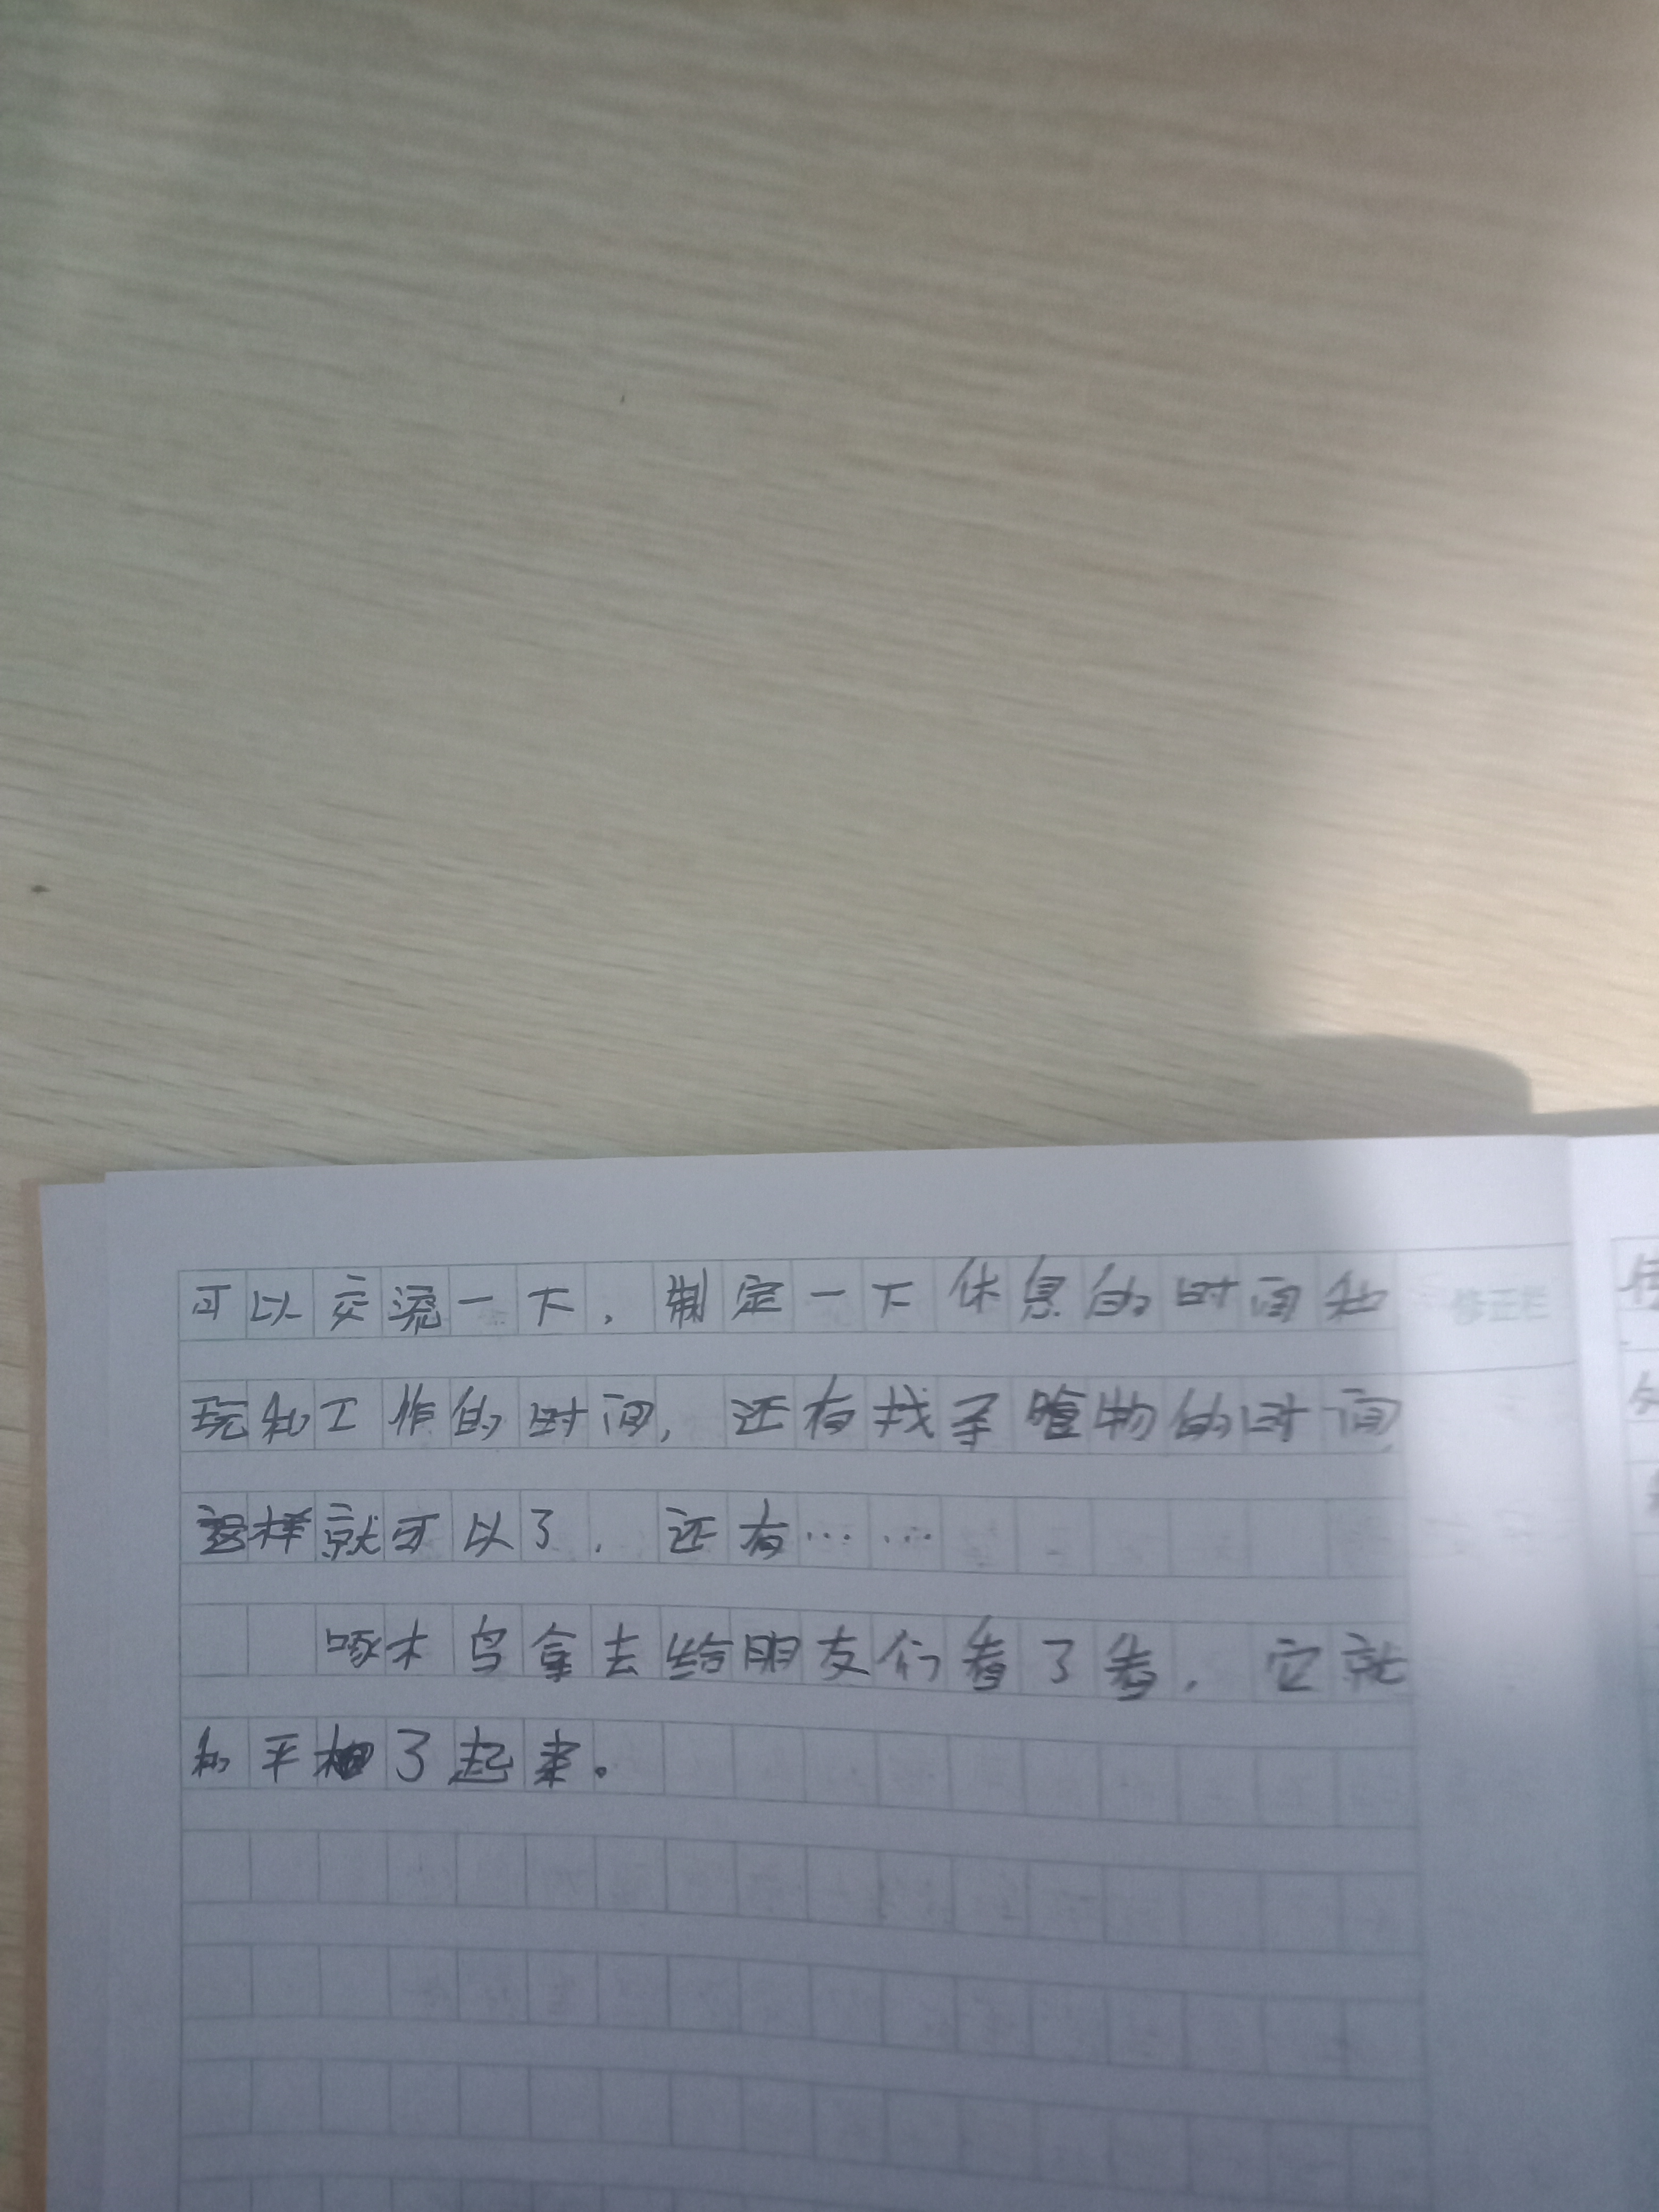 可以交流一下，制定一下休息的时间和
玩和工作的时间，还有找寻食物的时间
这样就可以了，还有……
啄木鸟拿去给朋友们看了看，它就
和平了起来。
修正栏